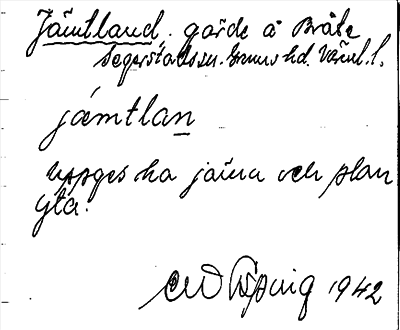 Jämtland. gärde å Bråte
Segerstads sn. Grums hd. Värml. l.
jämtlan
uppges ha jämn och plan
yta.
1942